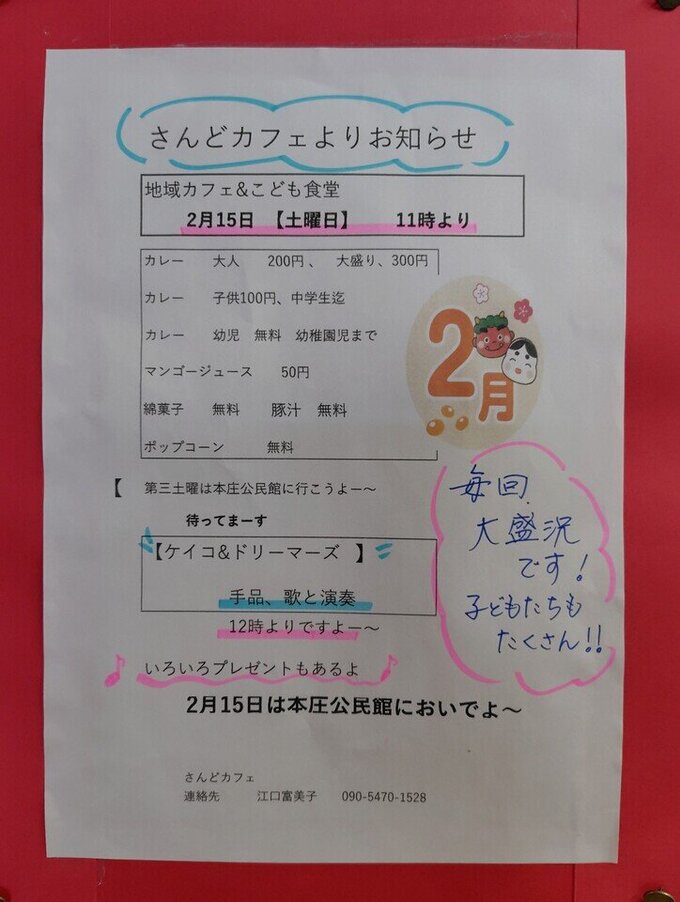 さんどカフェよりお知らせ
地域カフェ&こども食堂
2月15日 【土曜日】 11時より
カレー 大人 200円 、 大盛り、300円
カレー 子供100円、中学生迄
カレー 幼児 無料 幼稚園児まで
マンゴージュース 50円
綿菓子 無料 豚汁 無料
ポップコーン 無料
2月
【 第三土曜は本庄公民館に行こうよー～
待ってまーす
【ケイコ&ドリーマーズ 】
手品、歌と演奏
12時よりですよー～
いろいろプレゼントもあるよ
毎回
大盛況
です!
子どもたちも
たくさん!!
2月15日は本庄公民館においでよ～
さんどカフェ
連絡先 江口富美子 090-5470-1528